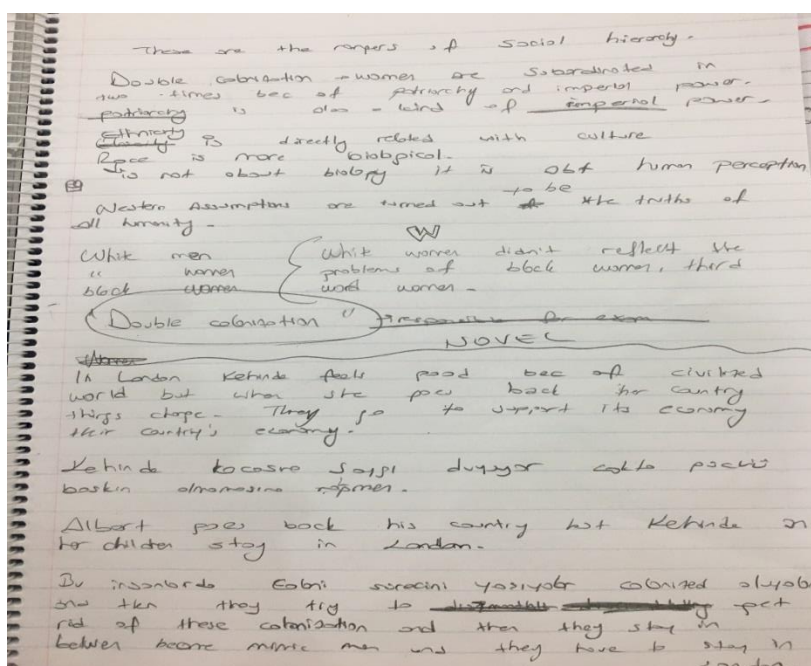 These are the rangers of social hierarchy.
Double colonisation → women are subordinated in
two times bec of patriarchy and imperial power.
patriarchy is also a kind of imperial power.
Ethnicity is directly related with culture
Race is more biological.
is not about biology it is abt human perception
to be
Western Assumptions are turned out the truths of
all humanity.
W
White men
White women didn't reflect the
" women
problems of black women, third
black women
world women.
"Double colonisation"
NOVEL
In London Kehinde feels good bec of civilized
world but when she goes back her country
things change. They go to support its economy
their country's economy.
Kehinde kocasına saygı duyuyor
baskın olmamasına rağmen.
Albert goes back his country but Kehinde an
her children stay in London.
Bu insanlarda coloni sürecini yaşıyorlar colonized oluyorlar
and then they try to get
rid of these colonisation and then they stay in
between become mimic man and they have to stay in